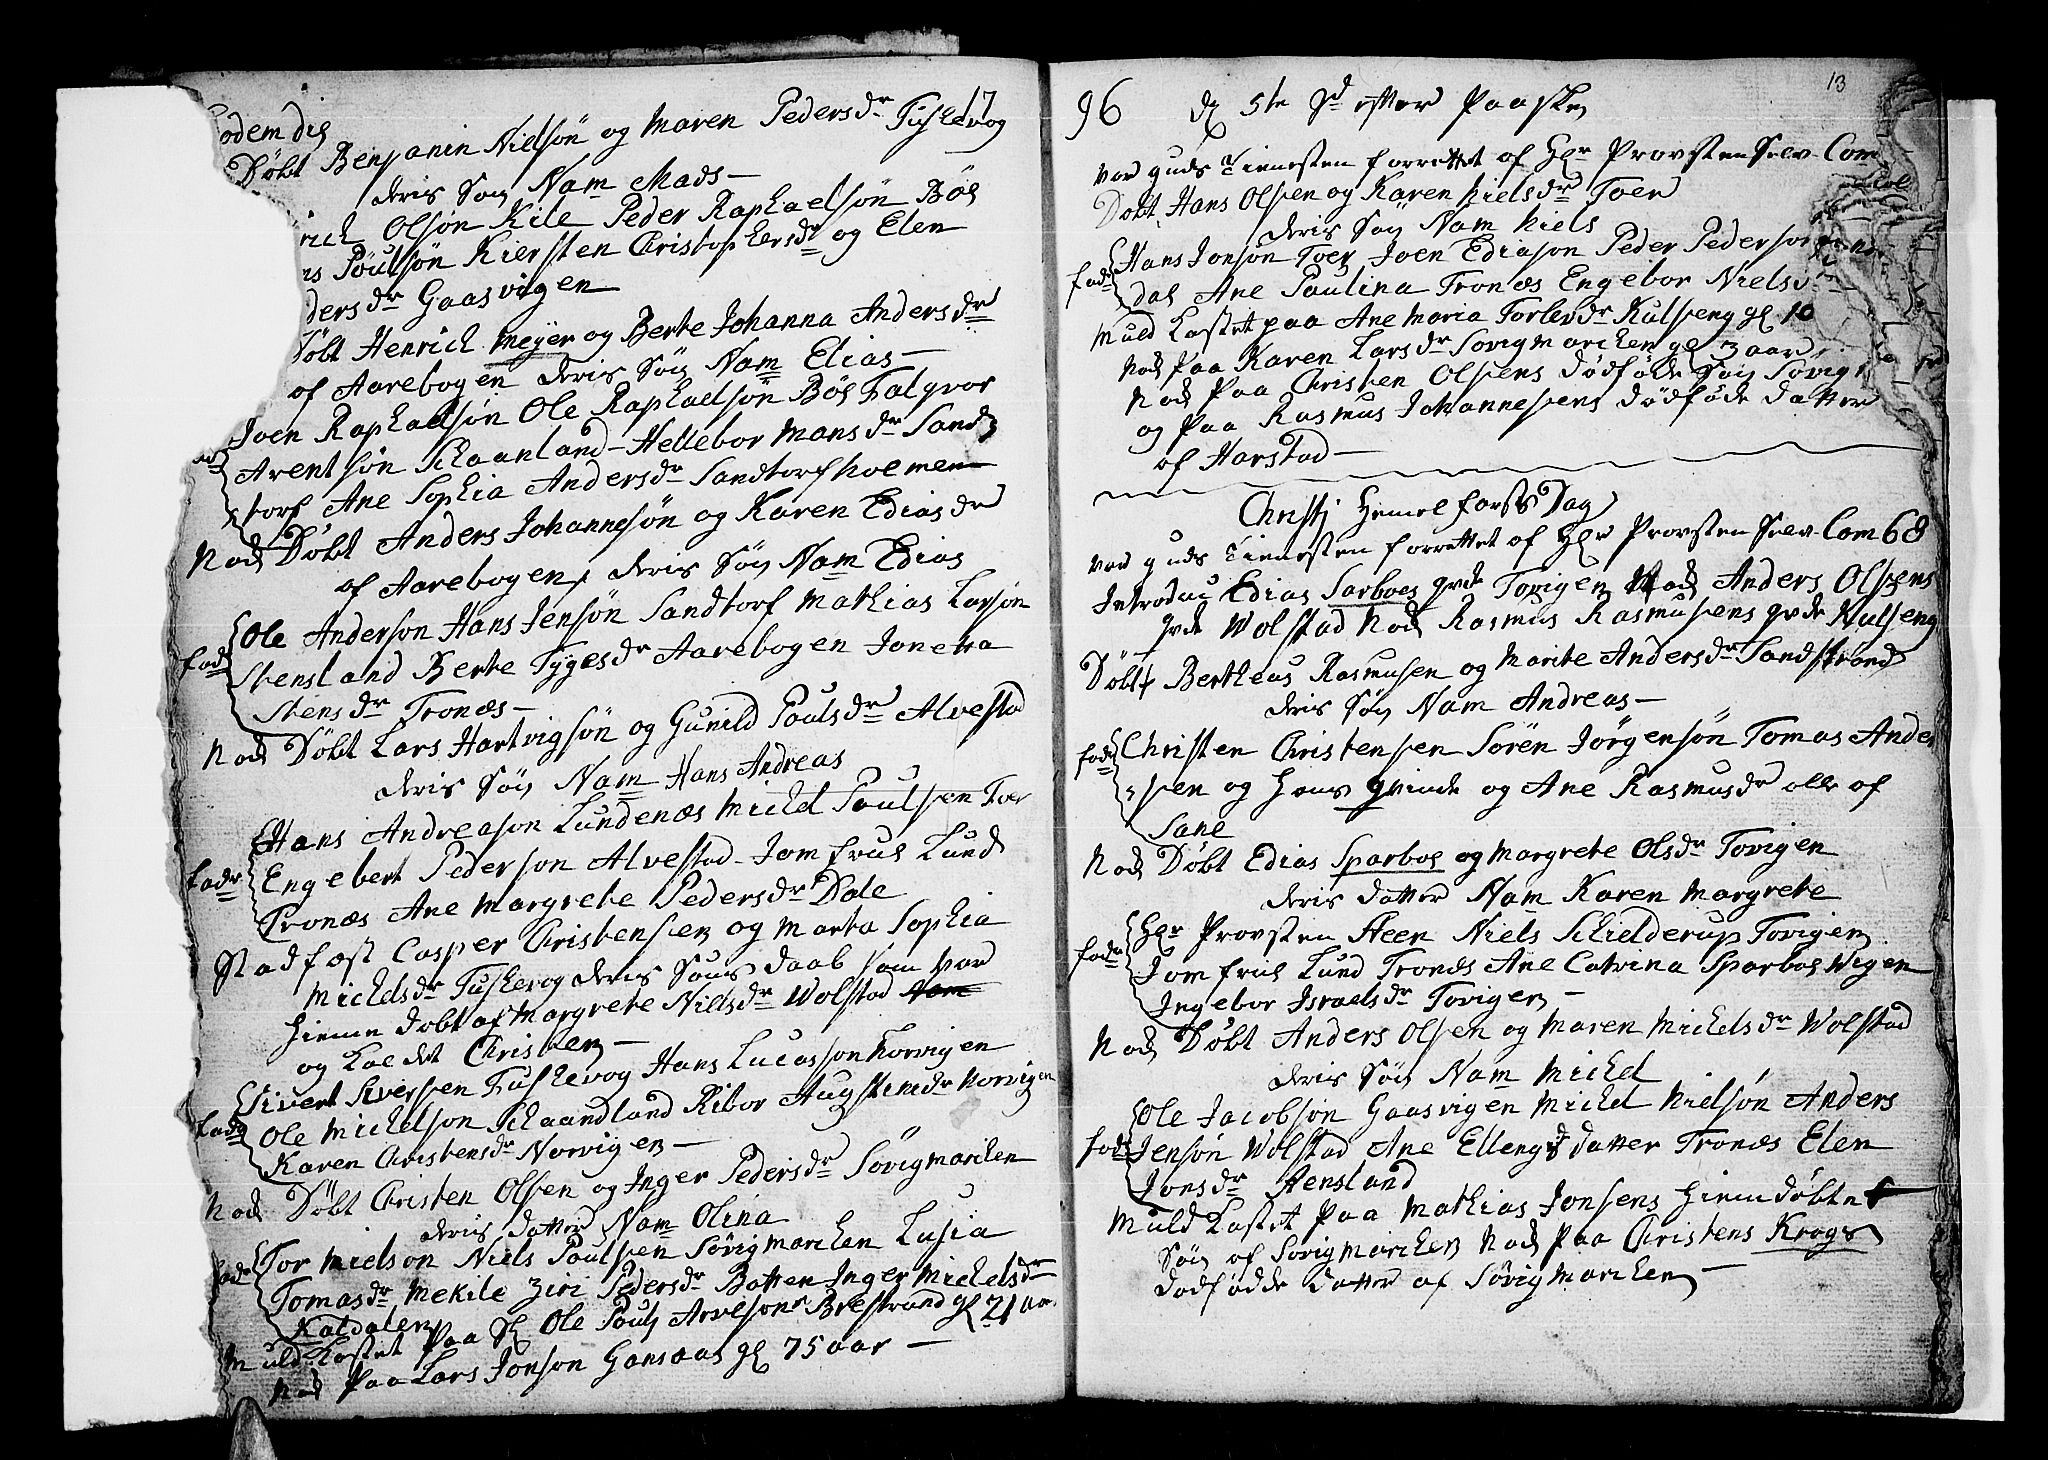 Eodem die
17
Døbt Benjanin Nielsön og Maren Pedersdr Fuskevog
deris Søn Nam Mads
rich Olsön Kile Peder Raphaelsön Böe
ns Poulsön Kiersten Christophersdr og Elen
dersdr Gaasvigen
Døbt Henrich Meyer og Berte Johanna Andersdr
of Aarebogen deris Søn Nam Elias
Joen Raphaelsön Ole Raphaelsön Böe Falqvor
Arentsön Schaanland Hellebor Mansdr Sand
torf Ane Sophia Andersdr Sandtorfholmen
Nock Döbt Anders Johannesön og Karen Ediasdr
of Aarebogen deris Sön Nam Edias
fadr Ole Anderson Hans Jensön Sandtorf Mathias Larsön
Stensland Berte Tygesdr Aarebogen Joneta
Stensdr Tronæs
Nock Döbt Lars Hartvigsön og Gunild Poulsdr Alvestad
deris Søn Nam Hans Andreas
Hans Andreason Lundenæs Michel Poulsen Toer
fadr Engebert Pederson Alvestad Jomfrue Lund
Tronæs Ane Margrete Pedersdr Dale
Stadfæst Casper Christensen og Marta Sophia
Michelsdr Fuskevog deris Søns Daab som var
hieme dobt af Margrete Nielsdr Wolstad
og Kaldet Christen
Sivert Siversen Fuskevog Hans Lucasson Norvigen
fadr Ole Michelson Schaandland Ribor Augstinsdr Norvigen
Karen Christensdr Norvigen
Nock Döbt Christen Olsen og Inger Pedersdr Sörvigmarchen
deris datter Nam Olina
fadr Tor Nielson Niels Poulsen Sörvigmarchen Lusia
Tomasdr Mekile Ziri Pedersdr Botten Inger Michelsdr
Kaldalen
Muld Kastet paa Ole Pouls Arvesons Brestrand gl 21 aar
Nock paa Lars Jonson Gansaas gl 75 aar
13
96 d 5te Sd efter Paaske
var Guds Tienesten forrettet of Hr Provsten Selv Com
Döbt Hans Olsen og Karen Nielsdr Toen
deris Søn Nam Niels
fadr Hans Jonsön Toen Joen Ediason Peder Pederson
dal Ane Paulina Tronæs Engebor Niels
Muld Kastet paa Ane Maria Torlevdr Kulseng gl 10
Nock paa Karen Larsdr Sorvigmarchen gl 3 aar
Nock paa Christen Olsens dödföde Søn Sörvig
og paa Rasmus Johannesens dödföde datter
of Harstad
Christi Hemelfarts Dag
var Guds Tienesten forrettet of Hr Provsten Selv Com 68
Introdu: Edias Sparboes qvde Tovigen Nock Anders Olsens
qvde Wolstad Nock Rasmus Rasmusens qvde Kulseng
Döbt Bertheus Rasmusen og Marite Andersdr Sandstrand
deris Søn Nam Andreas
fadr Christen Christensen Sören Jörgensön Tomas Ander
sen og Hans qvinde og Ane Rasmusdr alle of
Sane
Nock Döbt Edias Sparboe og Margrete Olsdr Tovigen
deris datter Nam Karen Margrete
fadr Hr Provsten Heen Niels Schielderup Tovigen
Jomfrue Lund Tronæs Ane Catrina Sparboe Wigen
Ingebor Israelsdr Tovigen
Nock Döbt Anders Olsen og Maren Michelsdr Wolstad
deris Søn Nam Michel
Ole Jacobsön Gaasvigen Michel Nielsön Anders
fadr Jensön Wolstad Ane Ellengsdatter Tronæs Elen
Jonsdr Stensland
Muld Kastet paa Mathias Jonsens hiemdöbte
Søn of Sorvigmarchen Nock paa Christens Krogs
dodfödde datter af Sörvigmarchen